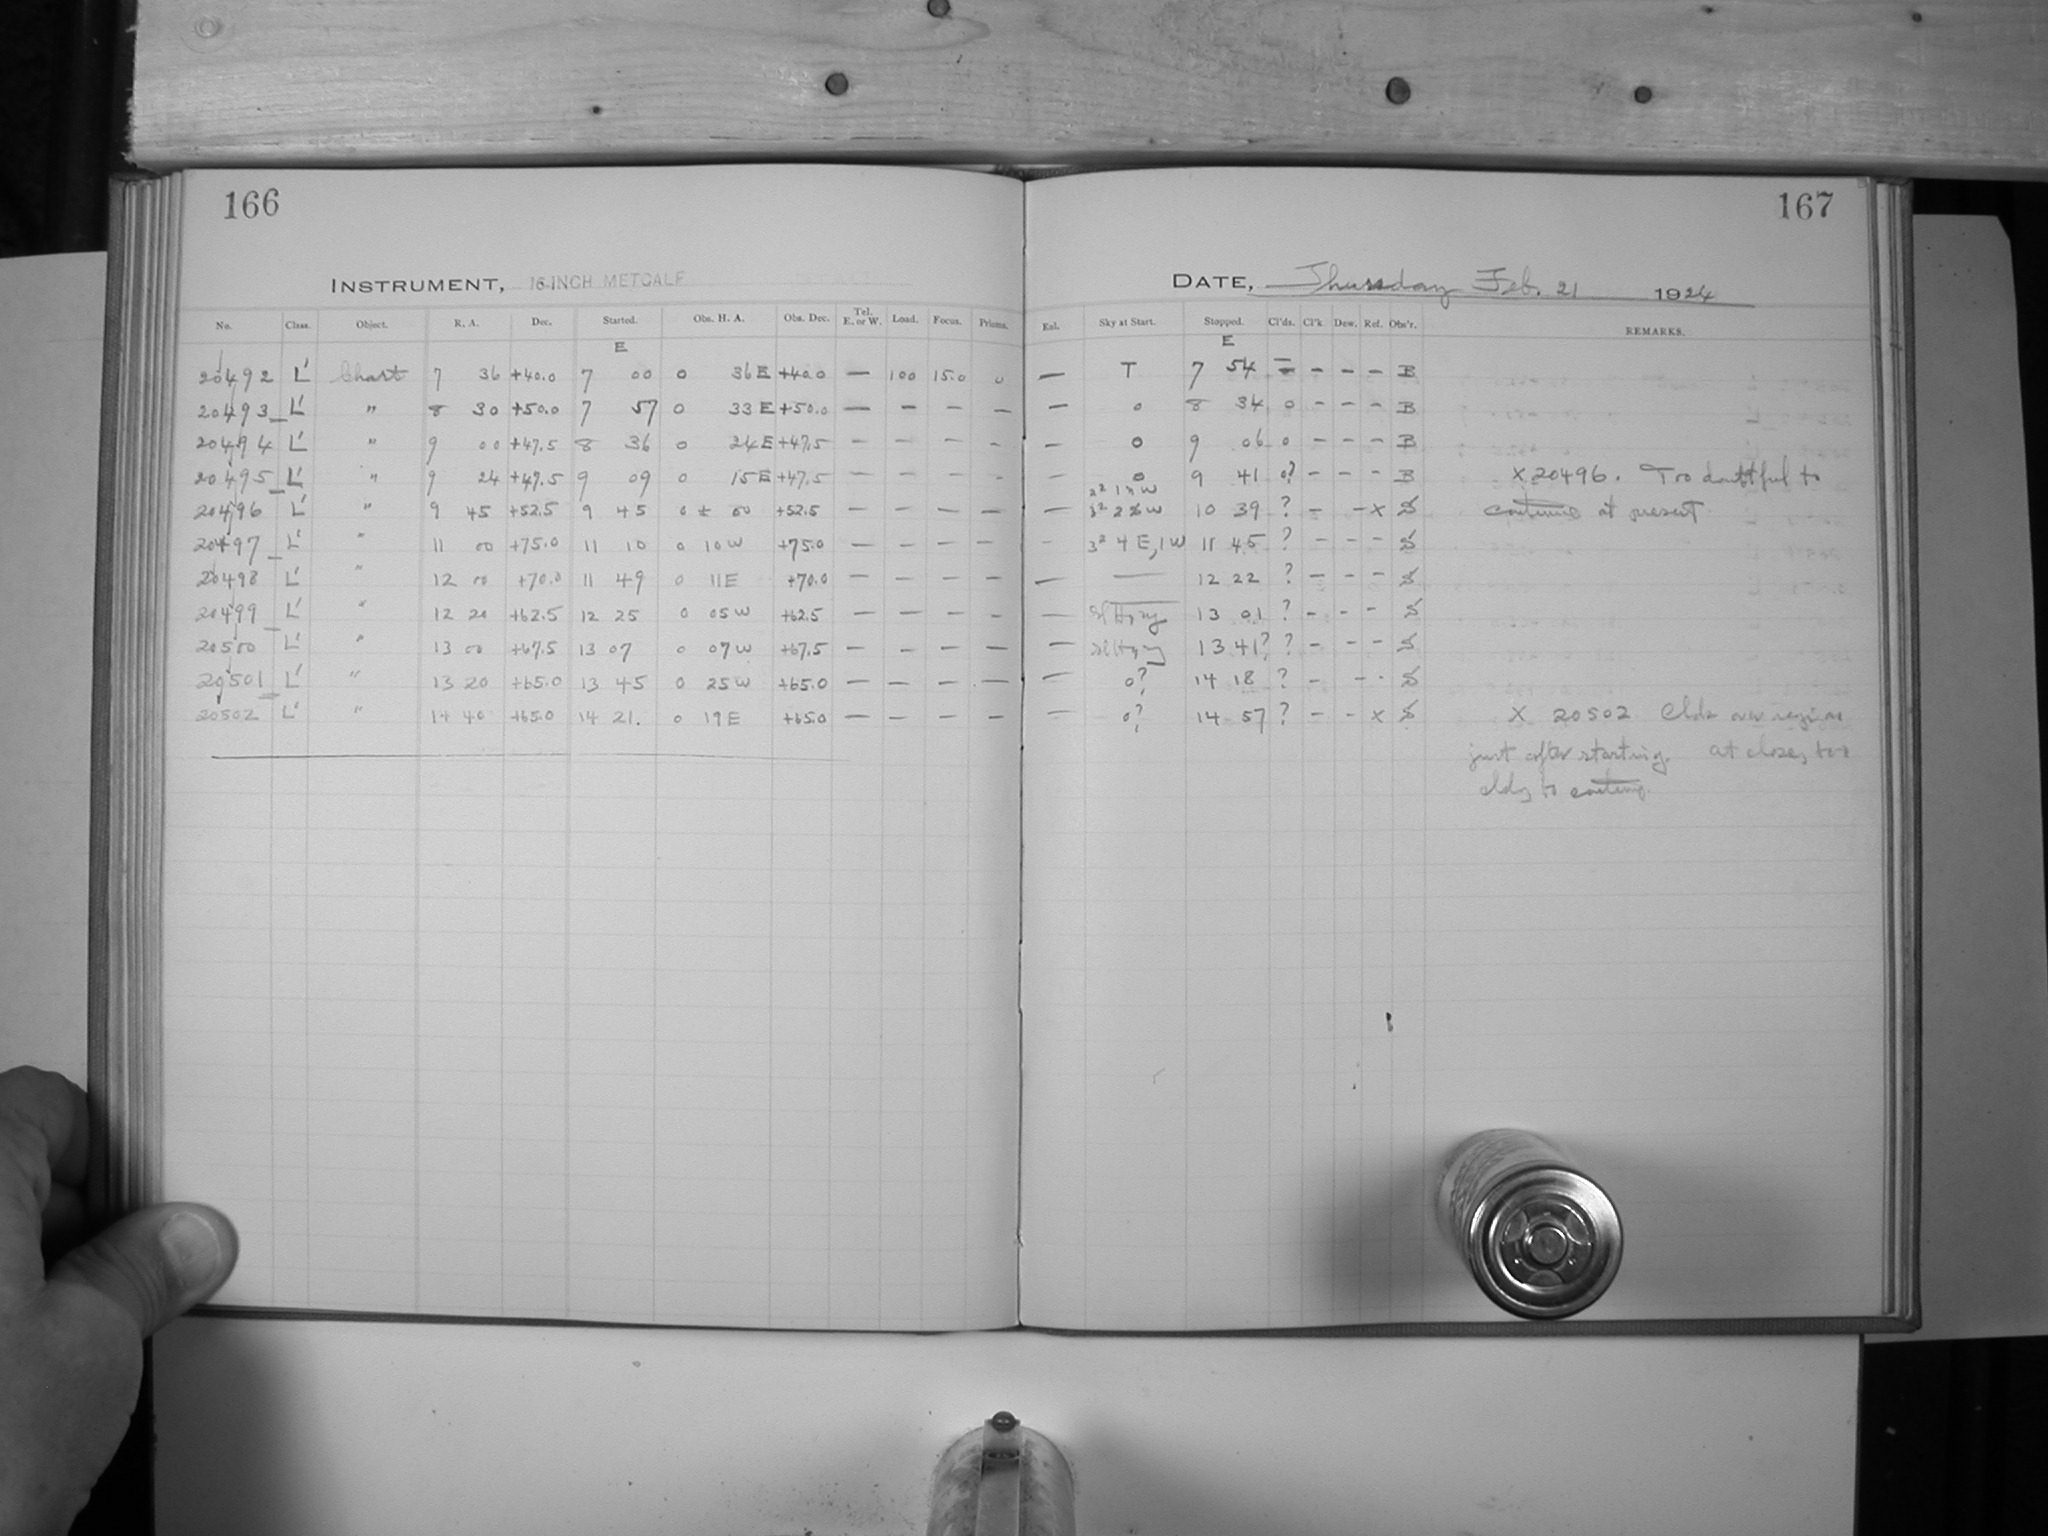 166
167
INSTRUMENT, 16-INCH METCALF
DATE, Thursday Feb. 21 1924
No. Class. Object. R. A. Dec. Started. Obs. H. A. Obs. Dec. Tel. E. or W. Load. Focus. Prisms. Eal. Sky at Start. Stopped. Cl'ds. Cl'k. Dew. Ref. Obs'r. REMARKS.
E E
20492 L' Chart 7 36 +40.0 7 00 0 36 E +40.0 — 100 15.0 0 — T 7 54 — — — B
20493 L' " 8 30 +50.0 7 57 0 33 E +50.0 — — — — — 0 8 34 0 — — — B
20494 L' " 9 00 +47.5 8 36 0 24 E +47.5 — — — — — 0 9 06 0 — — — B
20495 L' " 9 24 +47.5 9 09 0 15 E +47.5 — — — — — 0 9 41 0? — — — B X 20496. Too doubtful to
20496 L' " 9 45 +52.5 9 45 0 ± 00 +52.5 — — — — — 10 39 ? — — x S continue at present
20497 L' " 11 00 +75.0 11 10 0 10 W +75.0 — — — — — 3² 4 E, 1 W 11 45 ? — — — S
20498 L' " 12 00 +70.0 11 49 0 11 E +70.0 — — — — — — 12 22 ? — — — S
20499 L' " 12 20 +62.5 12 25 0 05 W +62.5 — — — — — Sl Hzy 13 01 ? — — — S
20500 L' " 13 00 +67.5 13 07 0 07 W +67.5 — — — — — Sl Hzy 13 41? ? — — — S
20501 L' " 13 20 +65.0 13 45 0 25 W +65.0 — — — — — 0? 14 18 ? — — - S
20502 L' " 14 40 +65.0 14 21. 0 19 E +65.0 — — — — — 0? 14 57 ? — — x S X 20502 Clds over region
just after starting. At close, too
cldy to continue.